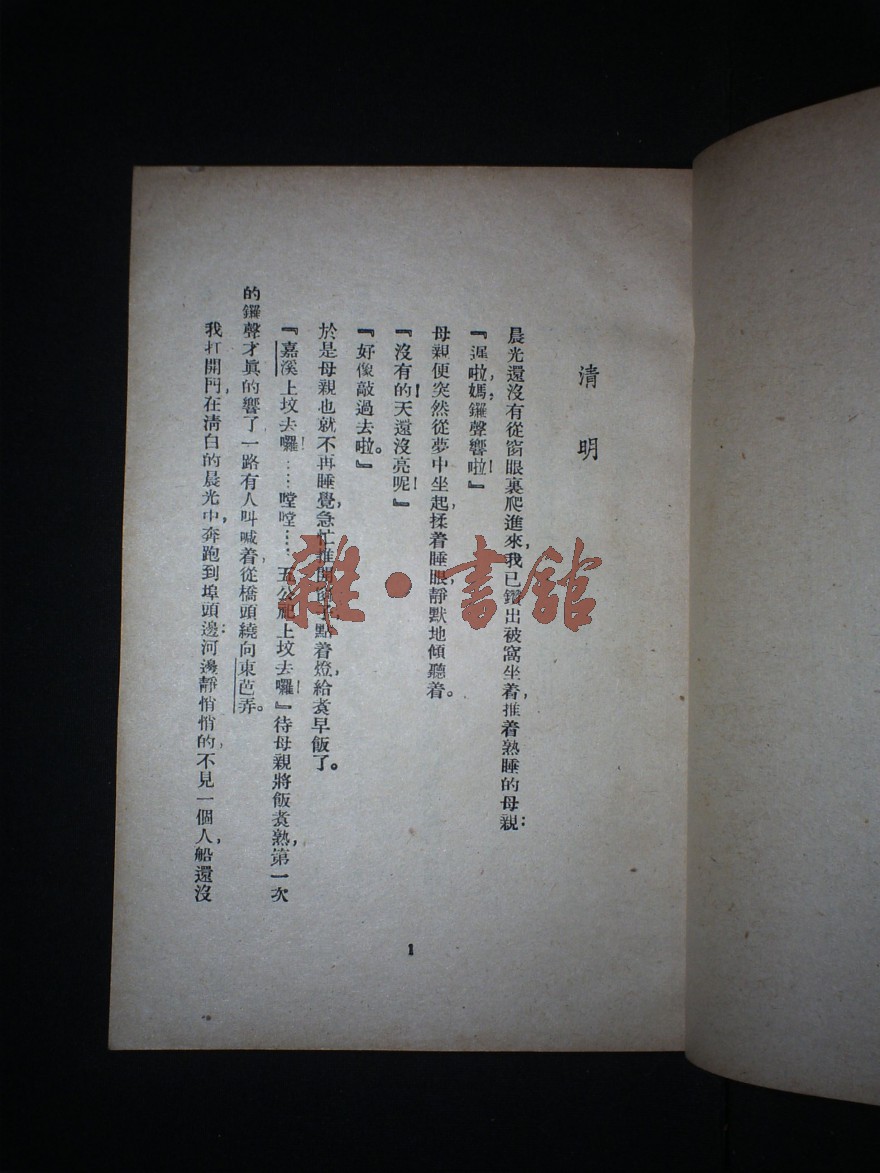 清明
晨光還沒有從窗眼裏爬進來，我已鑽出被窩坐着，推着熟睡的母親：
『遲啦，媽，鑼聲響啦！』
母親便突然從夢中坐起，揉着睡眼，靜默地傾聽着。
『沒有的！天還沒亮呢！』
『好像敲過去啦。』
於是母親也就不再睡覺，急忙推開窗子，點着燈，給煑早飯了。
『嘉溪上坟去囉！……嘡嘡……五公祀上坟去囉！』待母親將飯煑熟，第一次
的鑼聲才眞的響了，一路有人叫喊着，從橋頭繞向東芭弄。
我打開門，在淸白的晨光中，奔跑到埠頭邊：河邊靜悄悄的，不見一個人，船還沒
1
雜·書館